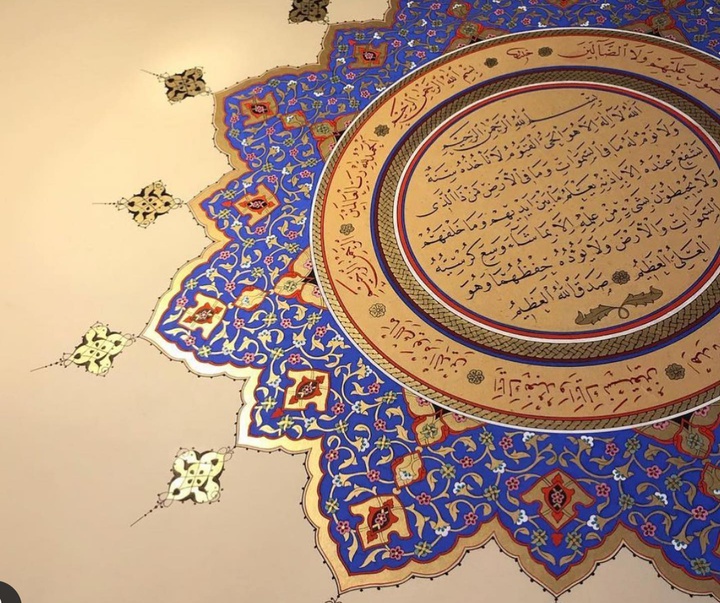 بِسْمِ اللهِ الرَّحْمٰنِ الرَّحِيمِ
اَللهُ لَا إِلٰهَ إِلَّا هُوَ الْحَيُّ الْقَيُّومُ لَا تَأْخُذُهُ سِنَةٌ
وَلَا نَوْمٌ لَهُ مَا فِي السَّمٰوَاتِ وَمَا فِي الْأَرْضِ مَنْ ذَا الَّذِي
يَشْفَعُ عِنْدَهُ إِلَّا بِإِذْنِهِ يَعْلَمُ مَا بَيْنَ أَيْدِيهِمْ وَمَا خَلْفَهُمْ
وَلَا يُحِيطُونَ بِشَيْءٍ مِنْ عِلْمِهِ إِلَّا بِمَا شَاءَ وَسِعَ كُرْسِيُّهُ
السَّمٰوَاتِ وَالْأَرْضَ وَلَا يَؤُدُهُ حِفْظُهُمَا وَهُوَ
الْعَلِيُّ الْعَظِيمُ
صَدَقَ اللهُ الْعَظِيمُ
بِسْمِ اللهِ الرَّحْمٰنِ الرَّحِيمِ
اَلْحَمْدُ لِلهِ رَبِّ الْعَالَمِينَ
اَلرَّحْمٰنِ الرَّحِيمِ
مَالِكِ يَوْمِ الدِّينِ
إِيَّاكَ نَعْبُدُ وَإِيَّاكَ نَسْتَعِينُ
عَلَيْهِمْ وَلَا الضَّالِّينَ